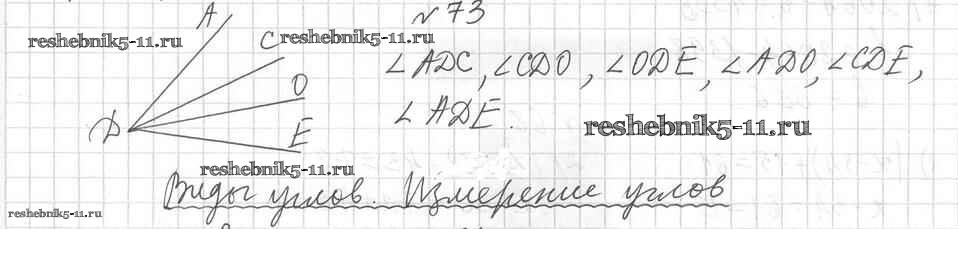 № 73
A
reshebnik5-11.ru
C reshebnik5-11.ru
∠ADC, ∠CDO, ∠ODE, ∠ADO, ∠CDE,
O
D
∠ADE.
E
reshebnik5-11.ru
reshebnik5-11.ru
Виды углов. Измерение углов
reshebnik5-11.ru